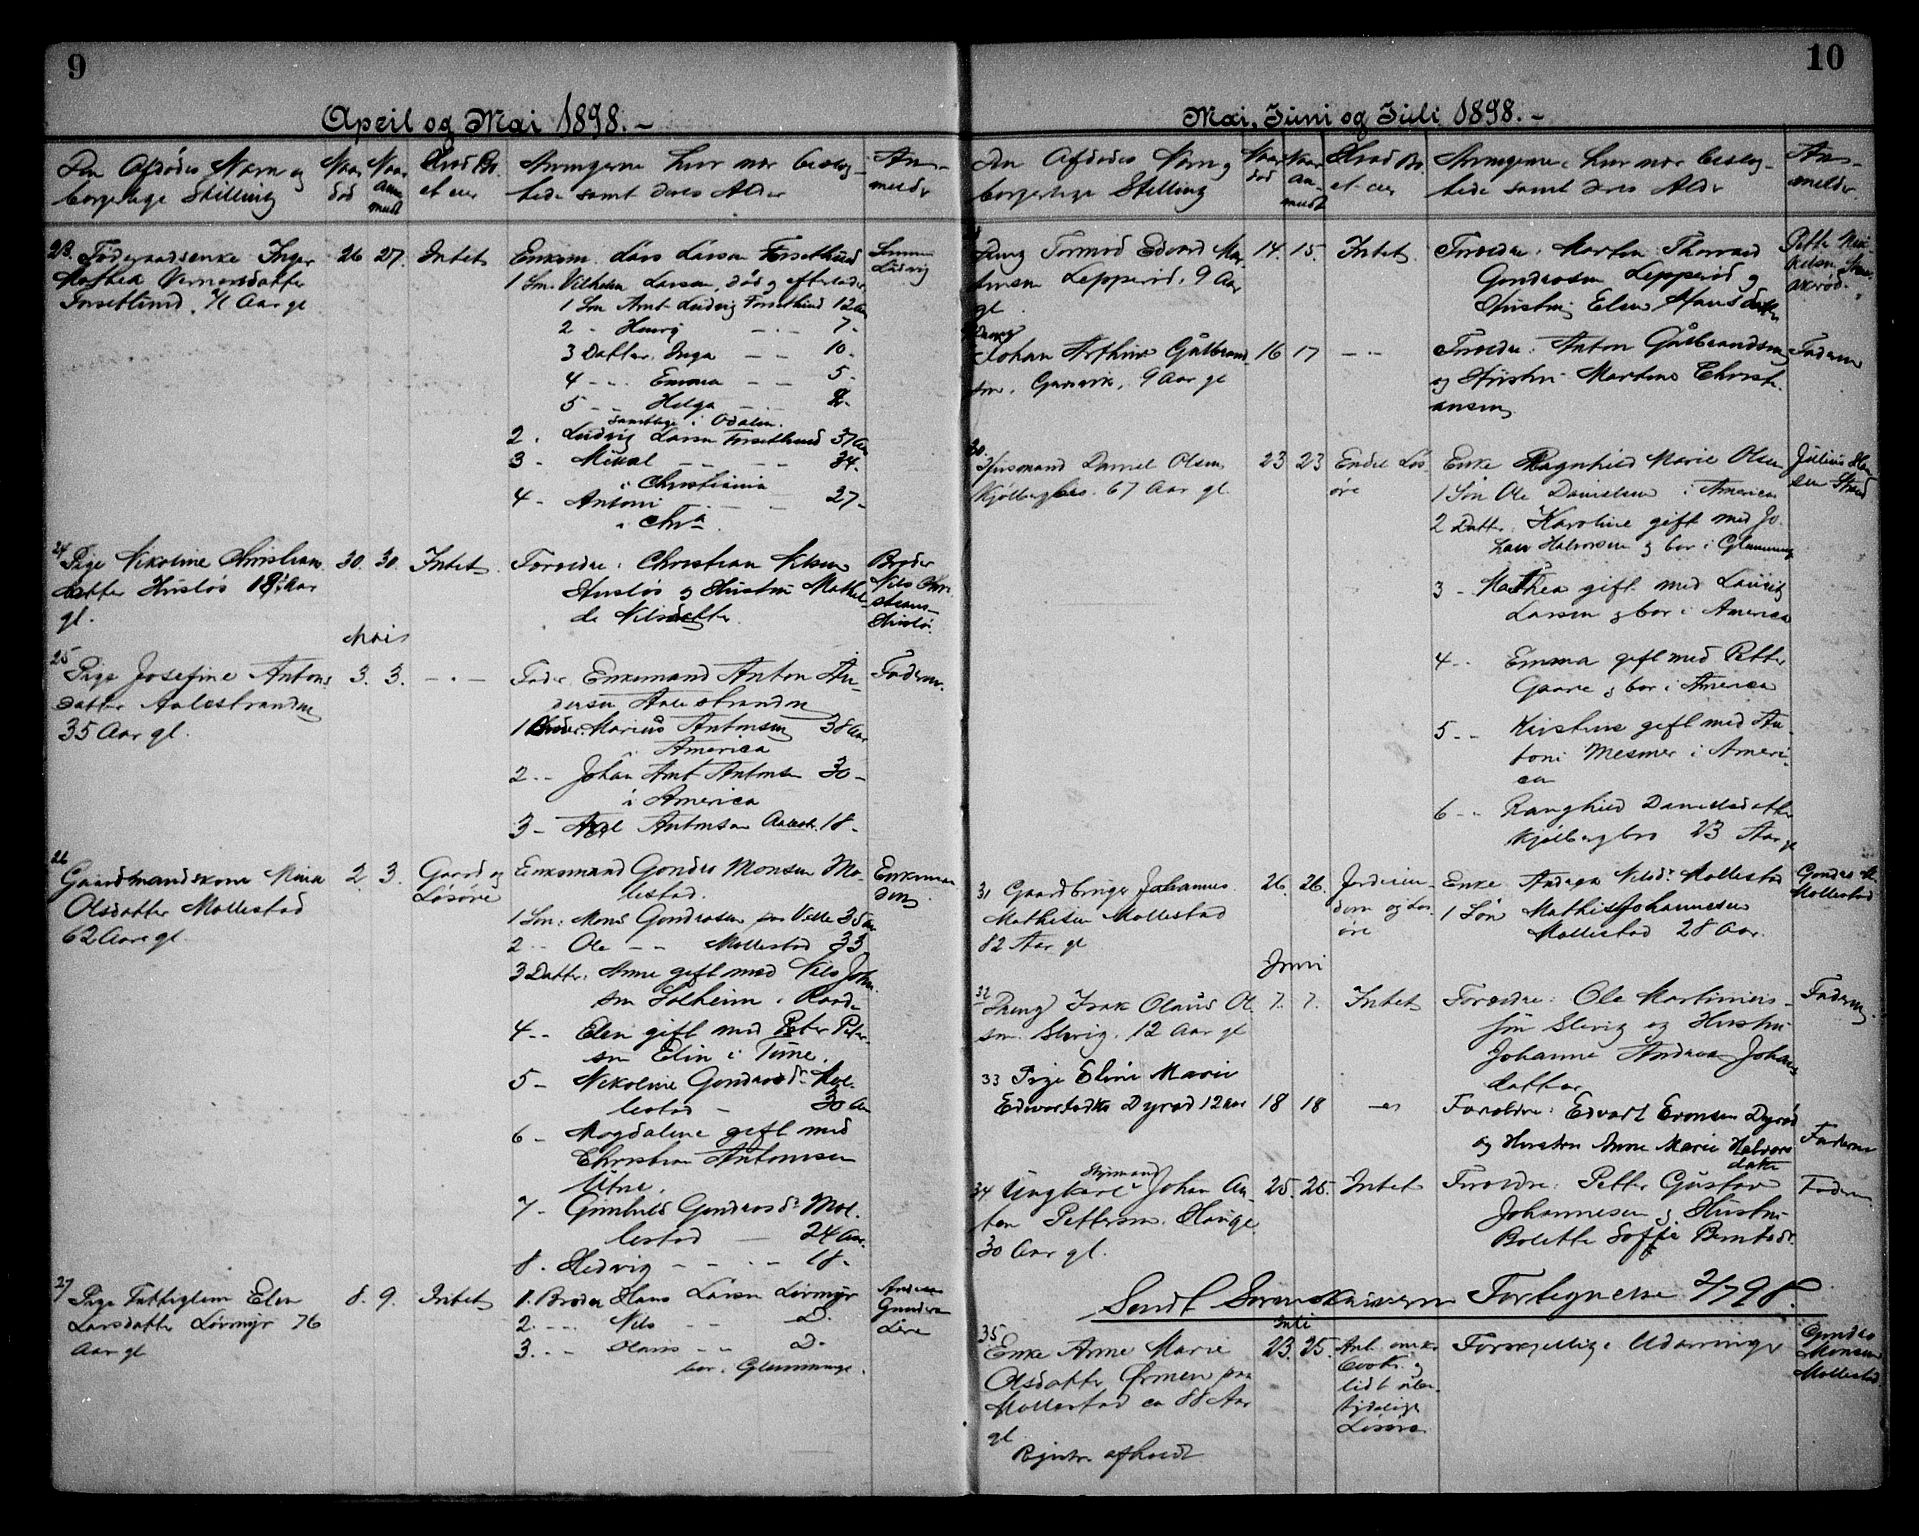 9
April og Mai 1898.-
Den Afdødes Navn og
borgerlige Stilling
Naar
død
Naar
anmeldt
Hvad Bo
et eier
Arvingerne hvor nær beslæg-
tede samt deres Alder
An-
melder
23. Føderaadsenke Inger
Mathea
Forsetlund, 71 Aar gl
26
27.
Intet
Enkem. Lars Larsen Forsetlund
1 Søn Vilhelm Larsen, død og efterlader
1 Søn Arnt Ludvig Forsetlund 12 Aar
2 - Henry - - 7-
3 Datter. Inga - - 10-
4 - - Emma - - 5-
5 - - Helga - -
samtlige i Odalen.
2. Ludvig Larsen Forsetlund 37 Aar
3 - Mikal - - 34-
i Christiania
4 - Antoni - - 27-
i Chra.
Sønnen
Ludvig
24 Pige Nikoline Christian
datter Husløs 18 Aar
gl.
30.
30.
Intet
Foreldre: Christian Nilsen
Husløs og Hustru Mathil-
de Nilsdatter
Broder
Nils Chri
stians-
Husløs.
Mai
25
Pige Josefine Antons
datter Aalestranden
35 Aar gl.
3.
3.
- . -
Fader Enkemand Anton An-
dersen Aalestranden
1 Broder. Marius Antonsen 38 Aar
i America
2 - - Johan Arnt Antonsen 30-
i America
3 - Axel Antonsen Aalestr. 18-
Faderen.
26
Gaardmandskone Maria
Olsdatter Mollestad
62 Aar gl.
2
3.
Gaard og
Løsøre
Enkemand Gondes Monsen Mo-
lestad.
1 Søn: Mons Gondrosen paa Velle 35 Aar
2 - - Ole - - Mollestad 33
3 Datter: Anne gift med Nils John
sen Solheim i Raade
4 - - Elen gift med Peter Peter-
sen Elin i Tune.
5 - Nikoline Gondrosdr. Mol-
lestad - 30 Aar
6 - Magdalene gift med
Christian Antonsen
Utne.
7 - Gunhild Gondrosdr. Mol-
lestad - 24 Aar.
8. Hedvig - - - - 18-
Enkeman
den.
27 Pige Fattiglem Elen
Larsdatter Lørmyr 76
Aar gl
8.
9.
Intet
1. Broder Hans Larsen Lørmyr
2. - - - Nils - - D.
3. - - - Olaus - - D-
bor i Glemminge.
Andreas
Gundersen
Lere
10
Mai, Juni og Juli 1898.-
Den Afdødes Navn og
borgerlige Stilling
Naar
død
Naar
an-
meldt
Hvad Bo
et eier
Arvingerne hvor nær beslæg-
tede samt deres Alder
An-
melder.
Dreng Tormod Edvard Mar-
tinsen Lepperød, 9 Aar
gl.
14.
15.
Intet
Foreldre: Martin Thorvald
Gondrosen Lepperød og
Hustru Elen Hansdatter
Petter
Dreng
Johan Arthur Gulbrand
sen. Gunvik. 9 Aar gl
16
17
- . -
Foreldre: Anton Gulbrandsen
og Hustru Martine Christi-
ansen
Faderen
30.
Husmand Daniel Olsen
Kjølbergbro. 67 Aar gl.
23
23
Endel Løs
øre
Enke Ragnhild Marie Olsen
1 Søn Ole Danielsen i America
2 Datter. Karoline gift med Jo
han Halvorsen og bor i Glemminge
3 - Mathea gift med Lauritz
Larsen og bor i America
4 - - Emma gift med Petter
Gaare og bor i America
5 - - Kristine gift med An-
toni Mesmer i Ameri-
ca
6 - - Ranghild Danielsdatter
Kjølbergbro 23 Aar gl
Julius Han
sen
31 Gaardbruger Johannes
Mathisen Mollestad
82 Aar gl
26.
26.
Jordeien-
dom og Løs-
øre
Enke Andrea Nilsdr. Mollestad
1 Søn Mathis Johannesen
Mollestad 28 Aar.
Gondes
Mollestad
Juni
32
Dreng Isak Olaus Ol
sen. Slevig. 12 Aar gl
7.
7.
Intet
Foreldre: Ole Martinius-
søn Slevig og Hustru
Johanne Andrea Johans
datter
Faderen
33 Pige Eline Marie
Edvardsdtr Dyrød 12 Aar
18
18
Foreldre: Edvart Evensen Dyrød
og Hustru Anne Marie Halvors
datter
Faderen
34 Ungkarl Styrmand Johan An-
ton Pettersen. Hauge
30 Aar gl.
25.
25.
Intet
Foreldre: Petter Gustav
Johannesen og Hustru
Bolette Soffie Berntsdr.
Faderen
Sendt Sorenskriveren Fortegnelse 2/7 98.
Juli
35
Enke Anne Marie
Olsdatter Ørmen paa
Mollestad ca 88 Aar
gl.
Registr. afholdt
23.
25.
lidt ube-
tydelige
Løsøre
Forskjellige Udarvinger
Gondes
Monsen
Mollestad